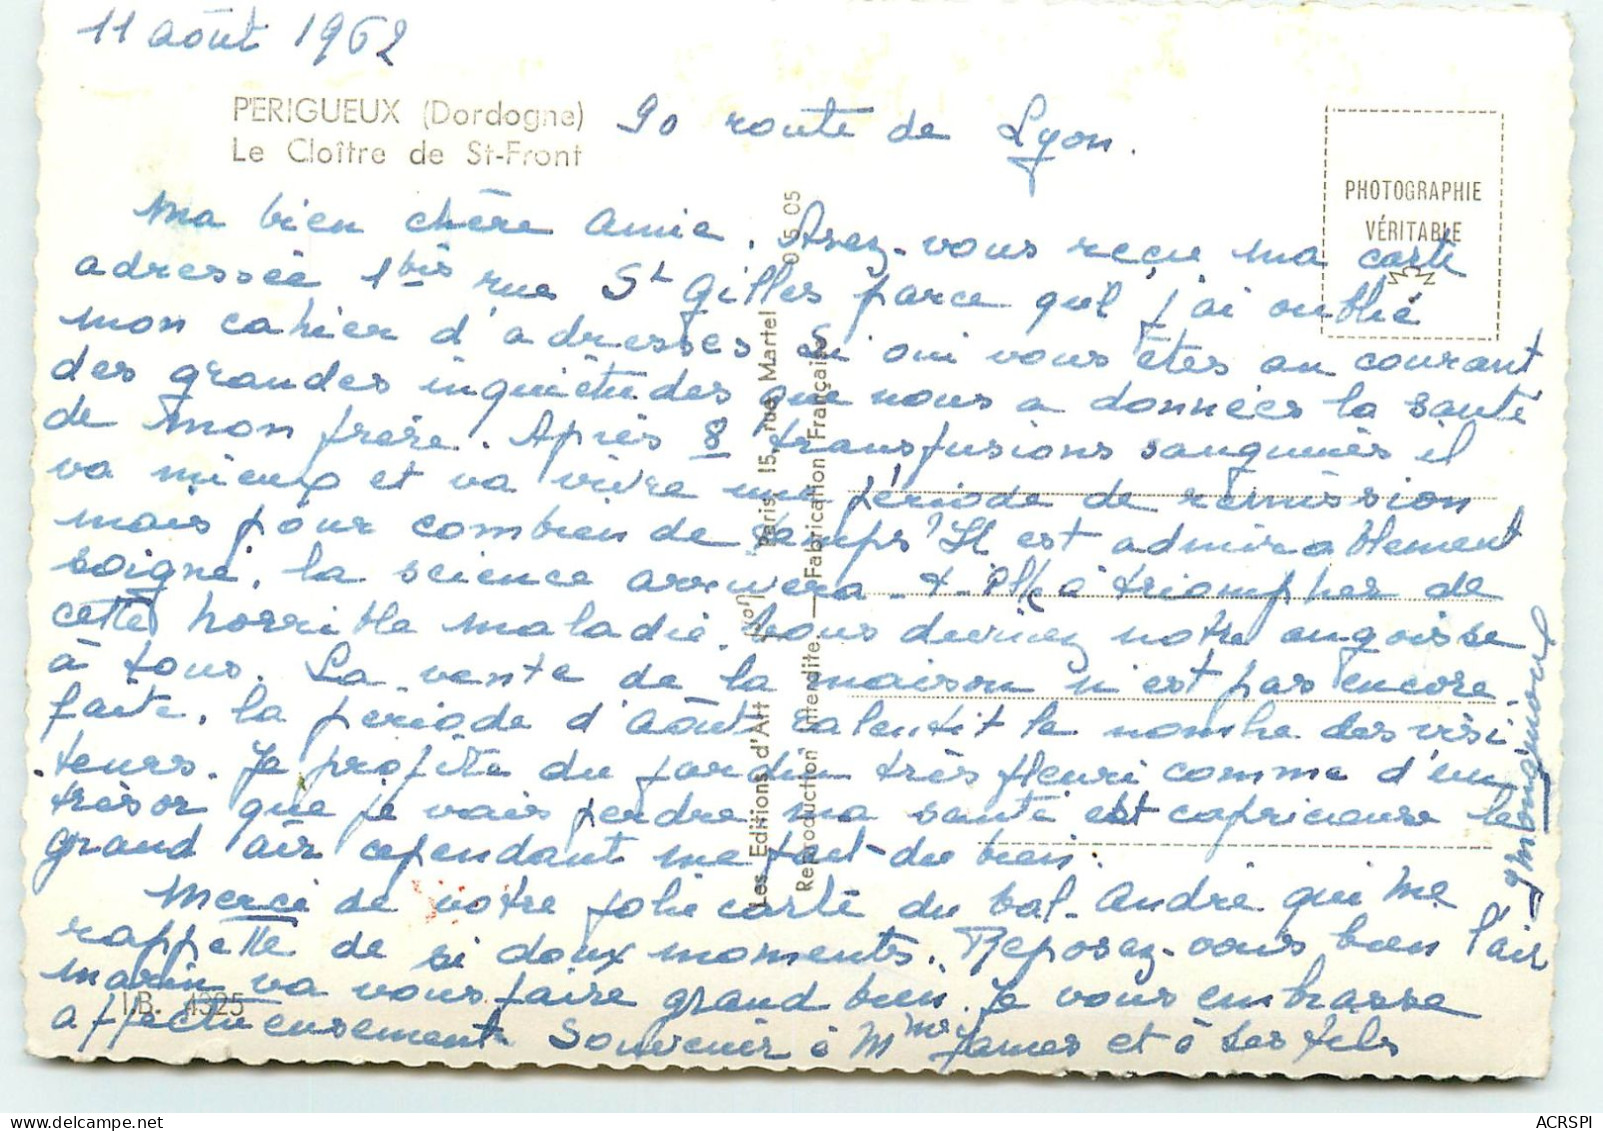 11 août 1962
PERIGUEUX (Dordogne)
Le Cloître de St-Front
90 route de Lyon.
PHOTOGRAPHIE
VÉRITABLE
Ma bien chère Amie. Avez-vous reçu ma carte
adressée 1bis rue St Gilles parce que j'ai oublié
mon cahier d'adresses, Si oui vous êtes au courant
des grandes inquiétudes que nous a données la santé
de mon frère. Après 8 transfusions sanguines il
va mieux et va vivre une période de rémission
mais pour combien de temps? Il est admirablement
soigné, la science arrivera-t-elle à triompher de
cette horrible maladie. Vous devinez notre angoisse
à tous. La vente de la maison n'est pas encore
faite, la période d'Août ralentit le nombre des visi-
teurs. Je profite du jardin très fleuri comme d'un
trésor que je vais perdre ma santé est capricieuse le
grand air cependant me fait du bien.
Merci de votre jolie carte du bal. André qui me
rappelle de si doux moments. Reposez-vous bien l'air
marin va vous faire grand bien. Je vous embrasse
affectueusement Souvenir à Mme James et à ses fils
I.B. 4325
Les Editions d'Art Paris, 15, rue Martel 05 05
Reproduction interdite. — Fabrication Française
ACRSPI